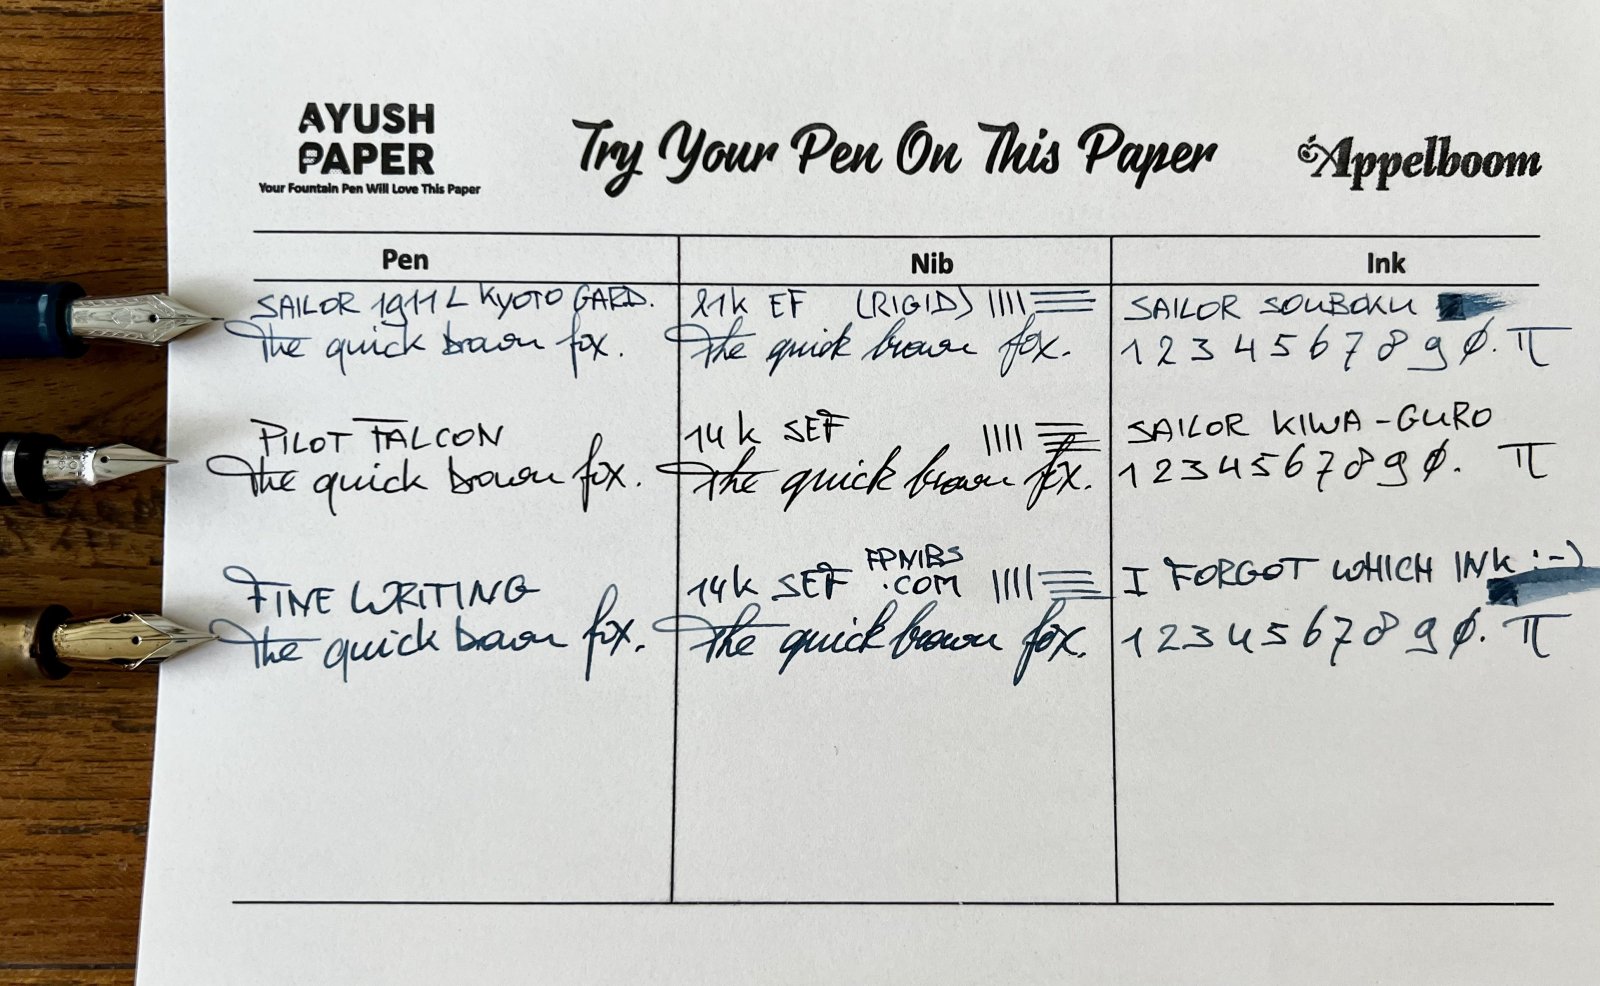 AYUSH
PAPER
Your Fountain Pen Will Love This Paper
Try Your Pen On This Paper
Appelboom
Pen Nib Ink
SAILOR 1911 L KYOTO GARD. 21K EF (RIGID) SAILOR SOUBOKU
The quick brown fox. The quick brown fox. 1 2 3 4 5 6 7 8 9 0. π
PILOT FALCON 14K SEF SAILOR KIWA-GURO
The quick brown fox. The quick brown fox. 1 2 3 4 5 6 7 8 9 0. π
FINE WRITING 14K SEF FPNIBS .COM I FORGOT WHICH INK :-)
The quick brown fox. The quick brown fox. 1 2 3 4 5 6 7 8 9 0. π